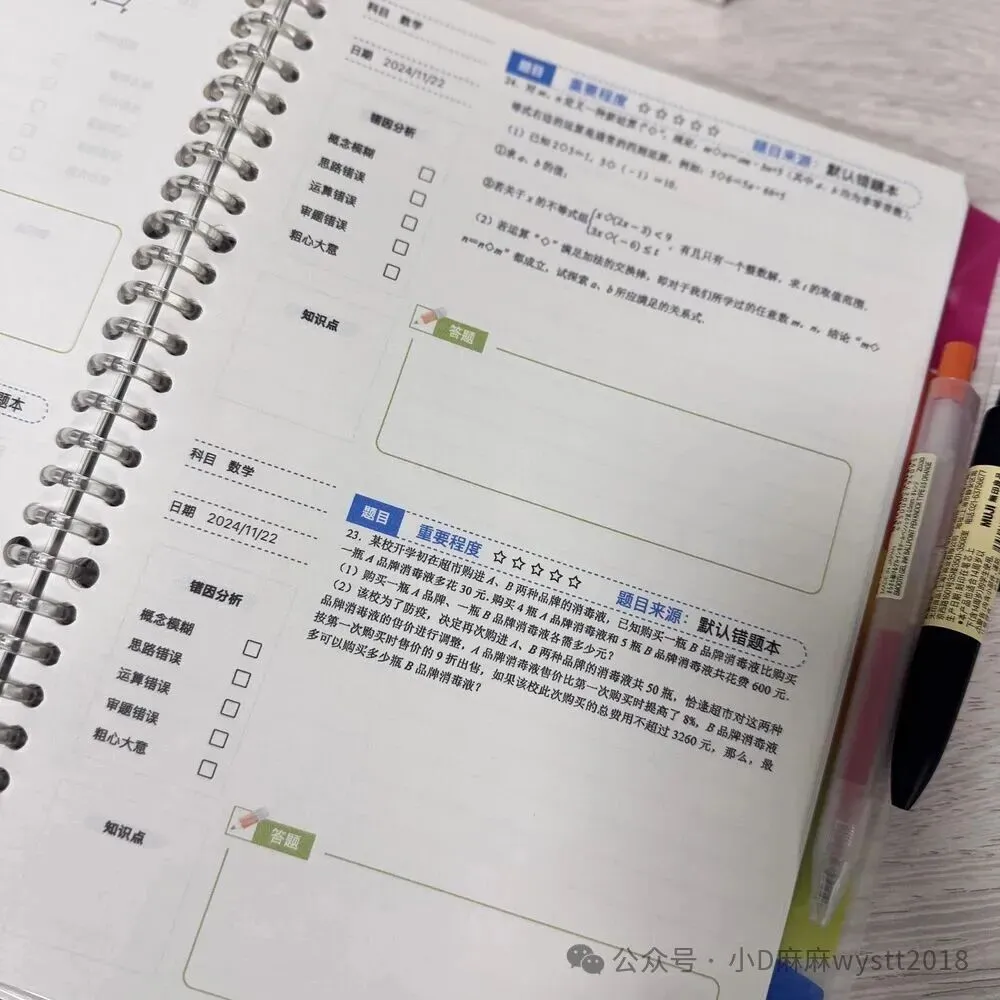 科目 数学
日期 2024/11/22
错因分析
概念模糊
思路错误
运算错误
审题错误
粗心大意
知识点
题目 重要程度 ☆☆☆☆☆ 题目来源: 默认错题本
24. 对 m、n 定义一种新运算“◇”,规定:
等式右边的运算是通常的四则运算,例如:
(1)已知 2◇3=1, 3◇(-1)=10.
①求 a、b 的值;
②若关于 x 的不等式组{x◇(2x-3)<9
3x◇(-6)≤t 有且只有一个整数解,求 t 的取值范围.
(2)若运算“◇”满足加法的交换律,即对于我们所学过的任意数 m、n,结论“m◇
n=n◇m”都成立,试探索 a、b 所应满足的关系式.
答题
题本
科目 数学
日期 2024/11/22
错因分析
概念模糊
思路错误
运算错误
审题错误
粗心大意
知识点
题目 重要程度 ☆☆☆☆☆ 题目来源 默认错题本
23. 某校开学初在超市购进 A、B 两种品牌的消毒液,已知购买一瓶 B 品牌消毒液比购买
一瓶 A 品牌消毒液多花 30 元.购买 4 瓶 A 品牌消毒液和 5 瓶 B 品牌消毒液共花费 600 元.
(1)购买一瓶 A 品牌、一瓶 B 品牌消毒液各需多少元?
(2)该校为了防疫,决定再次购进 A、B 两种品牌的消毒液共 50 瓶,恰逢超市对这两种
品牌消毒液的售价进行调整,A 品牌消毒液售价比第一次购买时提高了 8%,B 品牌消毒液
按第一次购买时售价的 9 折出售,如果该校此次购买的总费用不超过 3260 元,那么,最
多可以购买多少瓶 B 品牌消毒液?
答题
MUJI
公众号 · 小D麻麻wystt2018